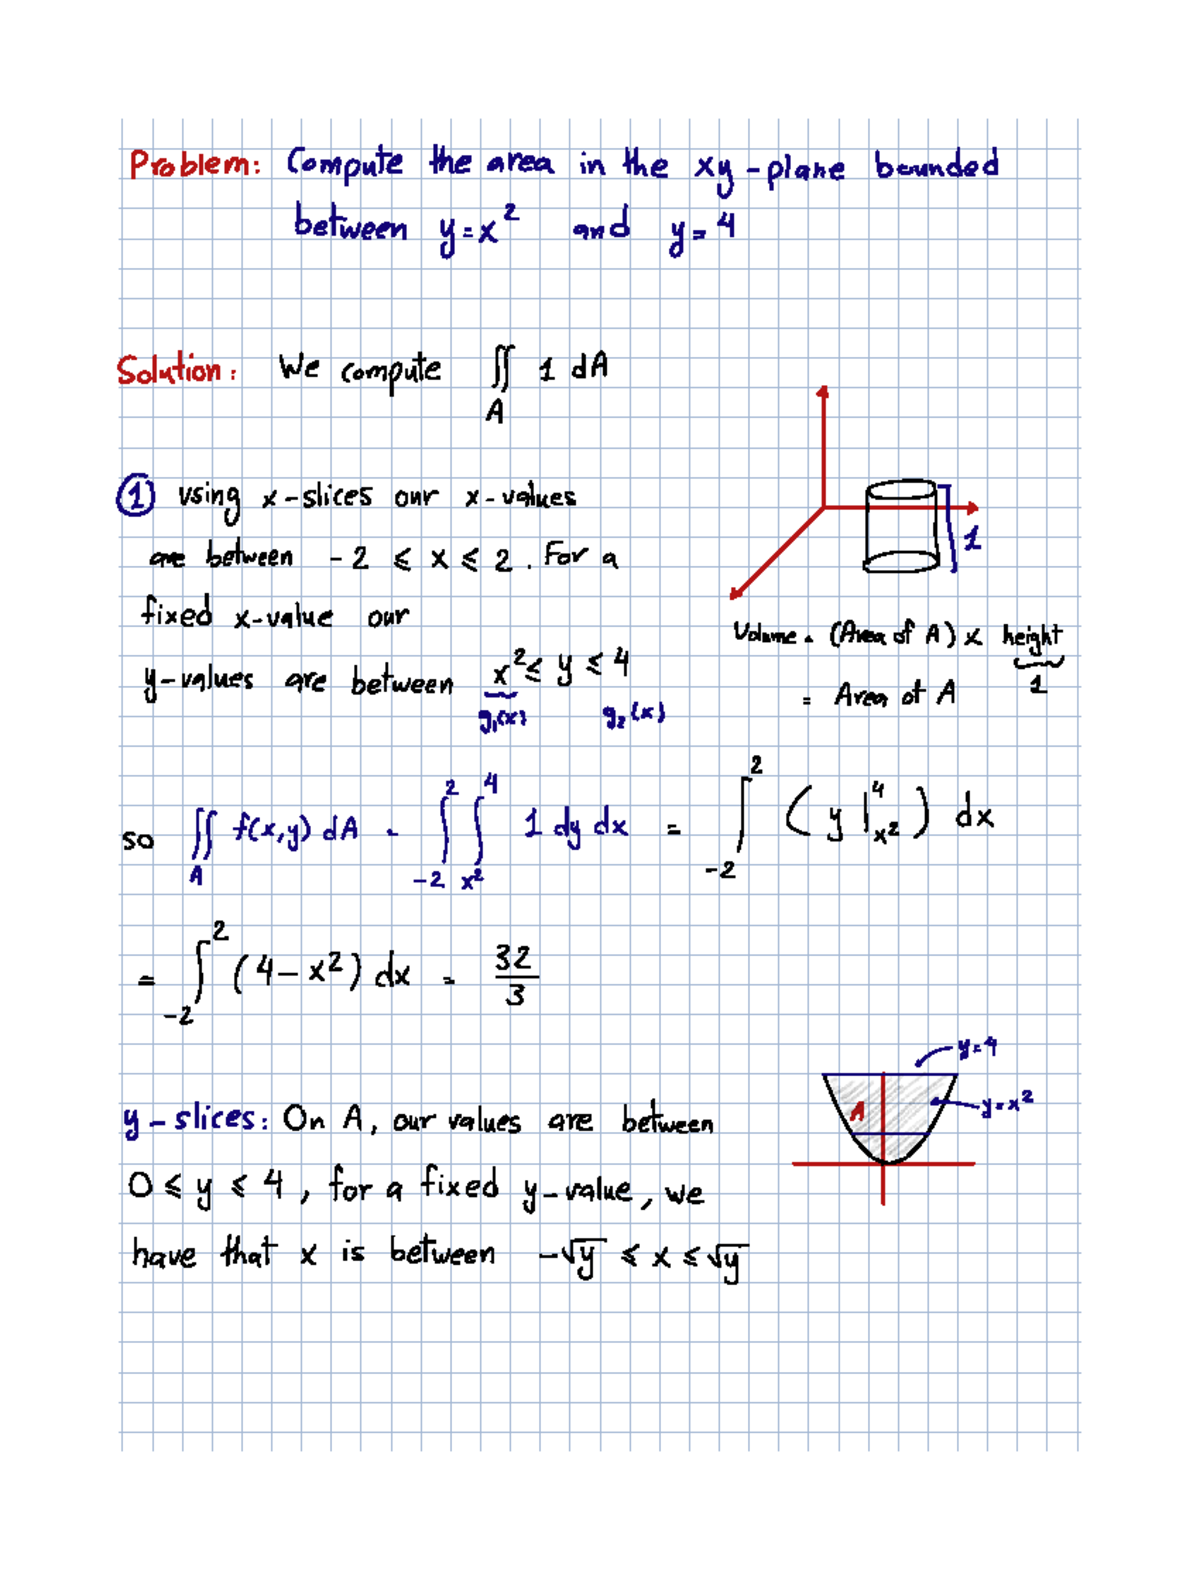 Problem: Compute the area in the xy-plane bounded
between y=x² and y=4
Solution: We compute ∬_A 1 dA
① using x-slices our x-values
are between -2 ≤ x ≤ 2. For a
fixed x-value our
y-values are between x² ≤ y ≤ 4
g₁(x) g₂(x)
1
Volume = (Area of A) × height
1
= Area of A
so ∬_A f(x,y) dA = ∫_{-2}^{2} ∫_{x²}^{4} 1 dy dx = ∫_{-2}^{2} ( y |_{x²}^{4} ) dx
= ∫_{-2}^{2} (4-x²) dx = 32/3
y-slices: On A, our values are between
0 ≤ y ≤ 4, for a fixed y-value, we
have that x is between -√y ≤ x ≤ √y
y=4
y=x²
A